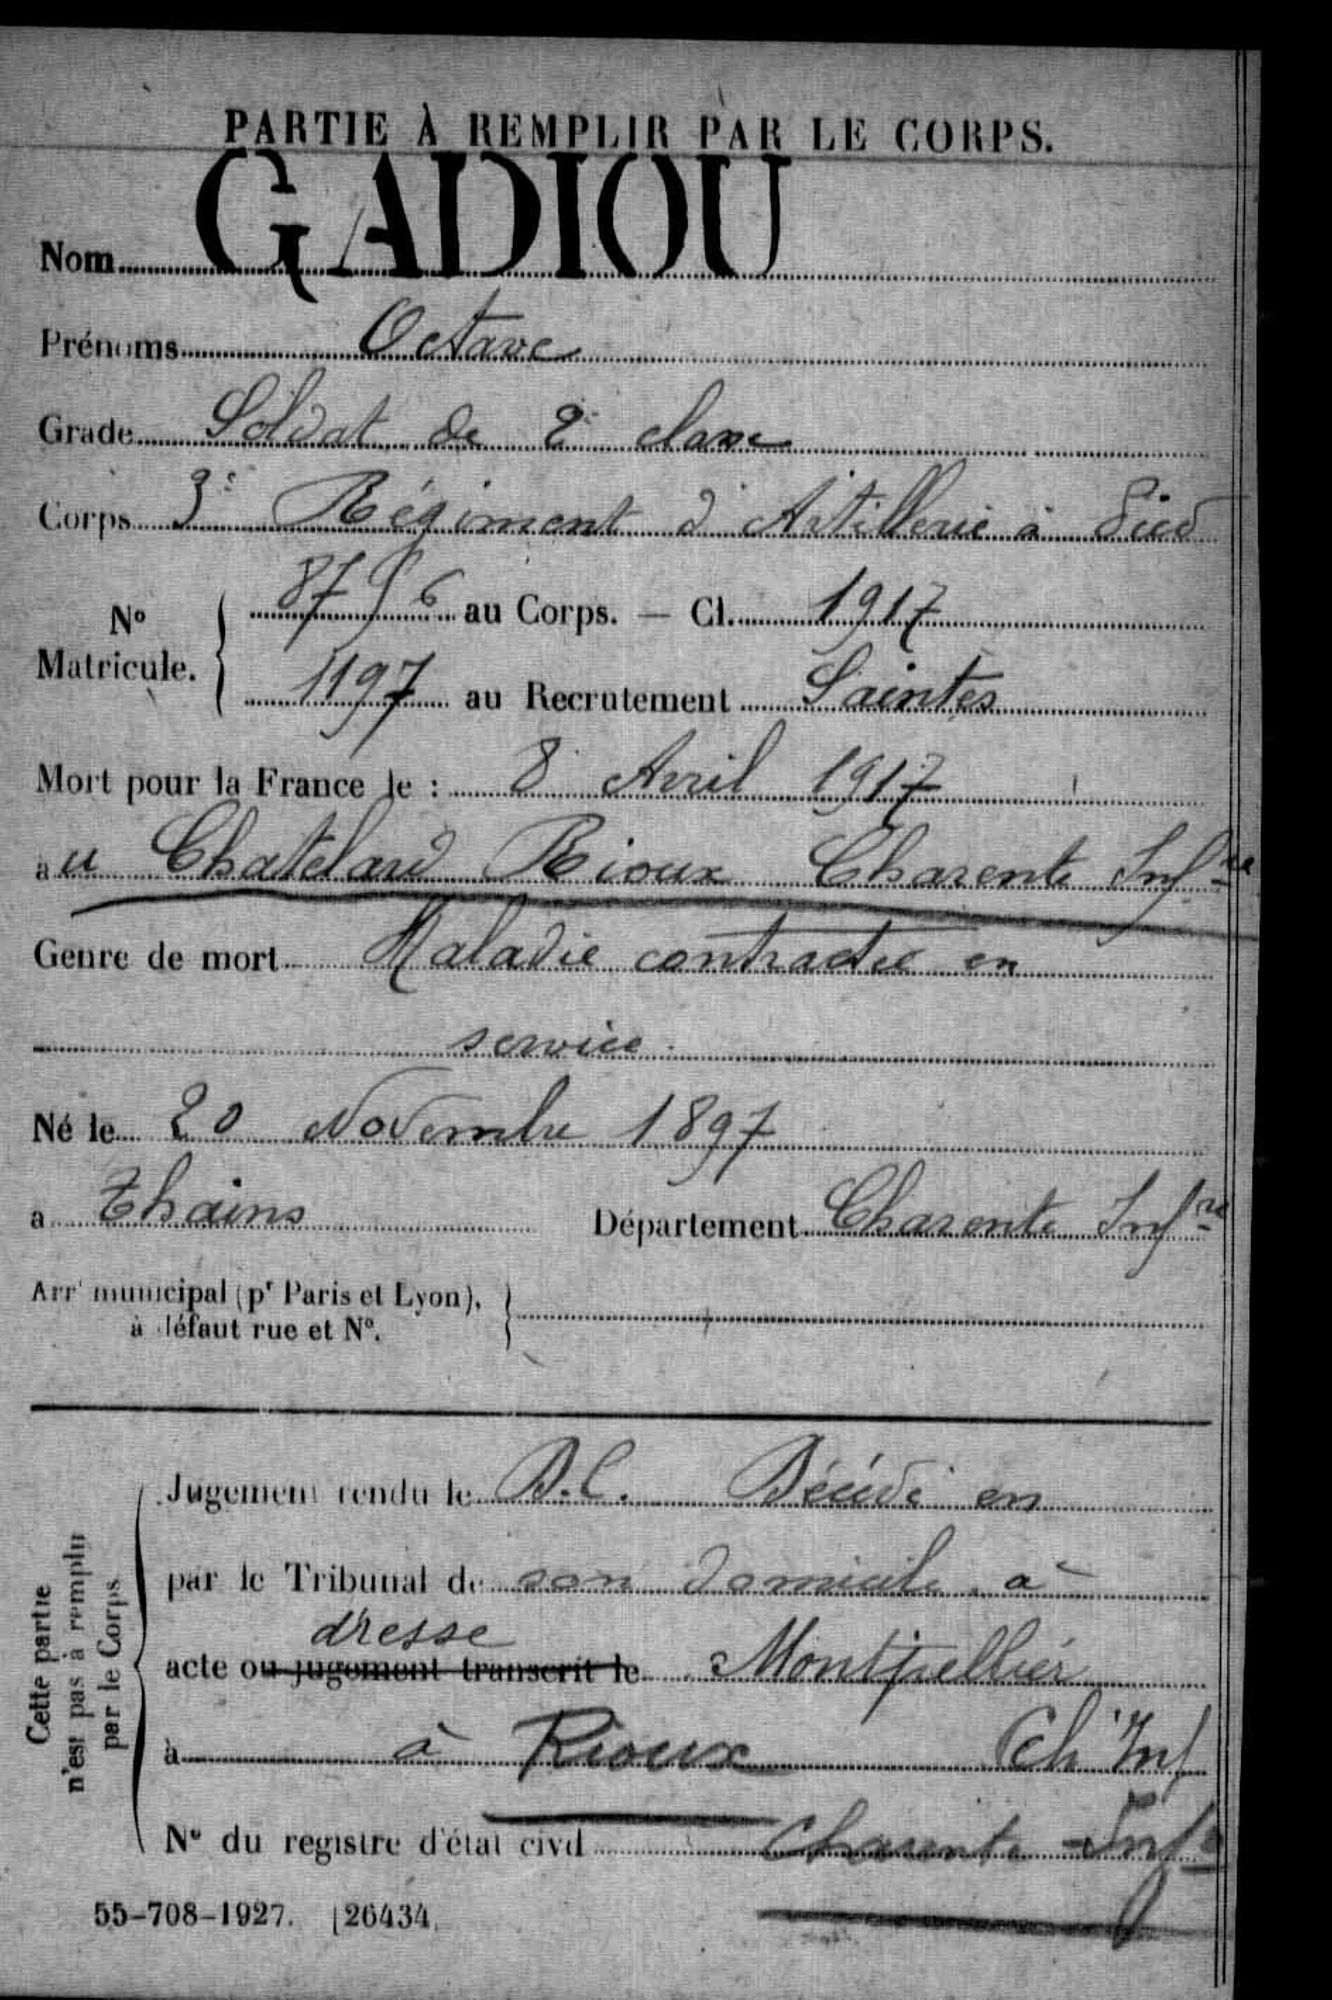 PARTIE À REMPLIR PAR LE CORPS.
Nom GADIOU
Prénoms Octave
Grade Soldat de 2e classe
Corps 3e Régiment d'Artillerie à Pied
No Matricule. { 8756 au Corps. — Cl. 1917
1197 au Recrutement Saintes
Mort pour la France le : 8 Avril 1917
au Chatelard Rioux Charente Infre
Genre de mort Maladie contractée en
service
Né le 20 Novembre 1897
à Thains Département Charente Infre
Arrt municipal (pr Paris et Lyon),
à défaut rue et No.
Jugement rendu le D.C. Décédé en
par le Tribunal de son domicile à
dresse
acte ou jugement transcrit le Montpellier
à à Rioux Ch Inf
No du registre d'état civil Charente Infre
Cette partie
n'est pas à remplir
par le Corps
55-708-1927. [26434.